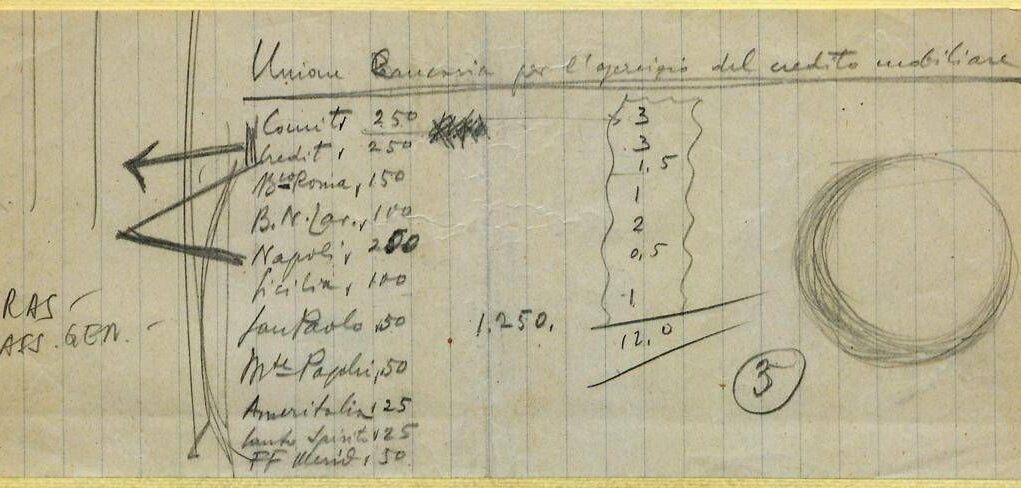 Unione Bancaria per l'esercizio del credito mobiliare
Comit, 250 3
Credit, 250 3
Bco Roma, 150 1,5
B.N.Lav., 100 1
Napoli, 200 2
Sicilia, 100 0,5
San Paolo, 50 1
1.250. 12,0
Mte Paschi, 50
Ameritalia, 25
Santo Spirito, 25
FF Merid, 50
RAS
ASS. GEN.
3